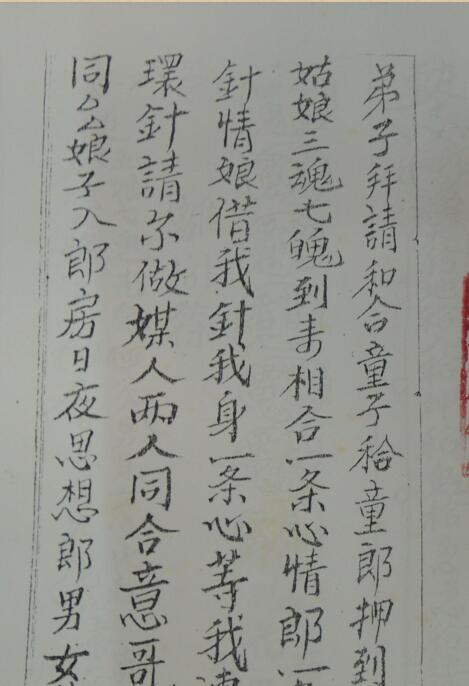 弟子拜請和合童子秴童郎押到
姑娘三魂七魄到来相合一条心情郎一
針情娘借我針我身一条心等我
環針請尔做媒人两人同合意哥
同娘子入郎房日夜思想郎男女